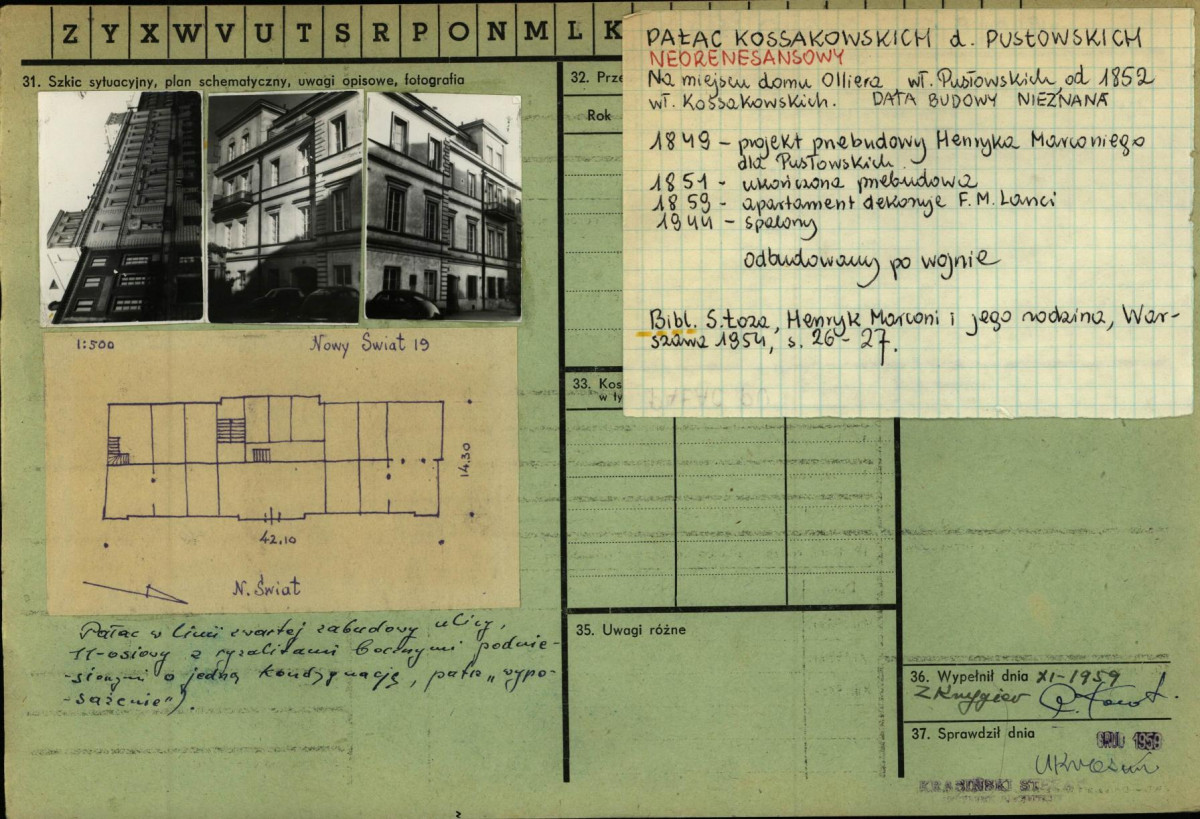 Z Y X W V U T S R P O N M L K
31. Szkic sytuacyjny, plan schematyczny, uwagi opisowe, fotografia
1:500 Nowy Świat 19
14.30
42.10
N. Świat
Pałac w linii zwartej zabudowy ulicy,
11-osiowy z ryzalitami bocznymi podnie-
-sionymi o jedną kondygnację, patrz "wypo-
-sażenie").
32. Prze
Rok
33. Kos
w ty
35. Uwagi różne
PAŁAC KOSSAKOWSKICH d. PUSŁOWSKICH
NEORENESANSOWY
Na miejscu domu Olliera wł. Pusłowskich od 1852
wł. Kossakowskich. DATA BUDOWY NIEZNANA
1849 – projekt przebudowy Henryka Marconiego
dla Pusłowskich.
1851 – ukończona przebudowa
1859 – apartament dekoruje F. M. Lanci
1944 – spalony
odbudowany po wojnie
Bibl. S. Łoza, Henryk Marconi i jego rodzina, War-
szawa 1954, s. 26–27.
36. Wypełnił dnia XI-1959
37. Sprawdził dnia
GRUD 1959